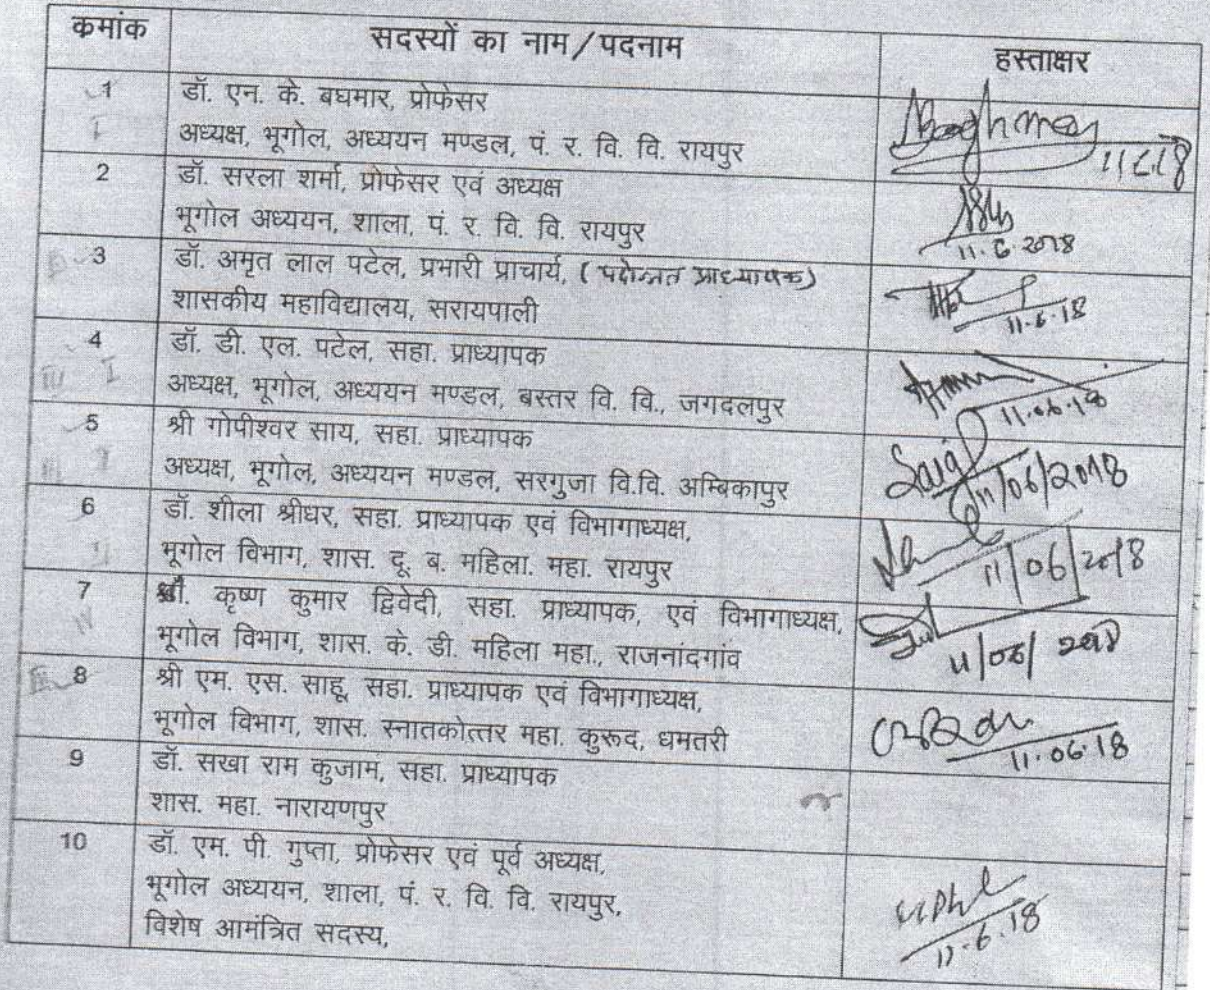 कमांक सदस्यों का नाम/पदनाम हस्ताक्षर
1 डॉ. एन. के. बघमार, प्रोफेसर
अध्यक्ष, भूगोल, अध्ययन मण्डल, पं. र. वि. वि. रायपुर
11.6.18
2 डॉ. सरला शर्मा, प्रोफेसर एवं अध्यक्ष
भूगोल अध्ययन, शाला, पं. र. वि. वि. रायपुर
11.6.2018
3 डॉ. अमृत लाल पटेल, प्रभारी प्राचार्य, (पदोन्नत प्राध्यापक)
शासकीय महाविद्यालय, सरायपाली
11.6.18
4 डॉ. डी. एल. पटेल, सहा. प्राध्यापक
अध्यक्ष, भूगोल, अध्ययन मण्डल, बस्तर वि. वि., जगदलपुर
11.06.18
5 श्री गोपीश्वर साय, सहा. प्राध्यापक
अध्यक्ष, भूगोल, अध्ययन मण्डल, सरगुजा वि.वि. अम्बिकापुर
11/06/2018
6 डॉ. शीला श्रीधर, सहा. प्राध्यापक एवं विभागाध्यक्ष,
भूगोल विभाग, शास. दू. ब. महिला. महा. रायपुर
11/06/2018
7 श्री. कृष्ण कुमार द्विवेदी, सहा. प्राध्यापक, एवं विभागाध्यक्ष,
भूगोल विभाग, शास. के. डी. महिला महा., राजनांदगांव
11/06/2018
8 श्री एम. एस. साहू, सहा. प्राध्यापक एवं विभागाध्यक्ष,
भूगोल विभाग, शास. स्नातकोत्तर महा. कुरूद, धमतरी
11.06.18
9 डॉ. सखा राम कुजाम, सहा. प्राध्यापक
शास. महा. नारायणपुर
10 डॉ. एम. पी. गुप्ता, प्रोफेसर एवं पूर्व अध्यक्ष,
भूगोल अध्ययन, शाला, पं. र. वि. वि. रायपुर,
विशेष आमंत्रित सदस्य,
11.6.18